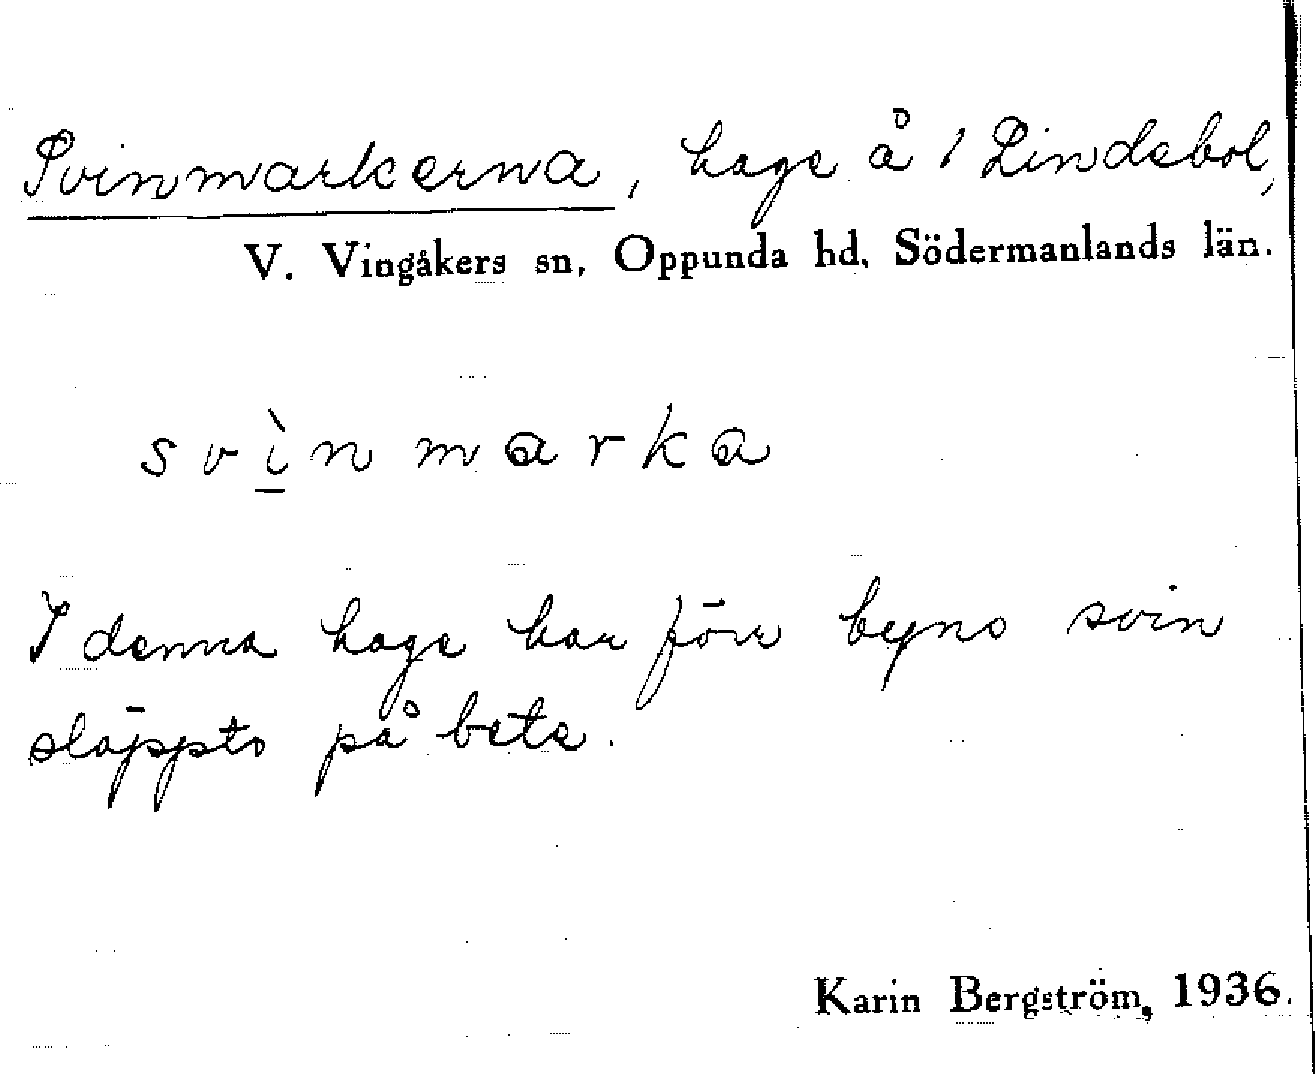 Svinmarkerna, hage å 1 Lindebol,
V. Vingåkers sn, Oppunda hd, Södermanlands län.
svìnmarka
I denna hage har förr byns svin
släppts på bete.
Karin Bergström, 1936.